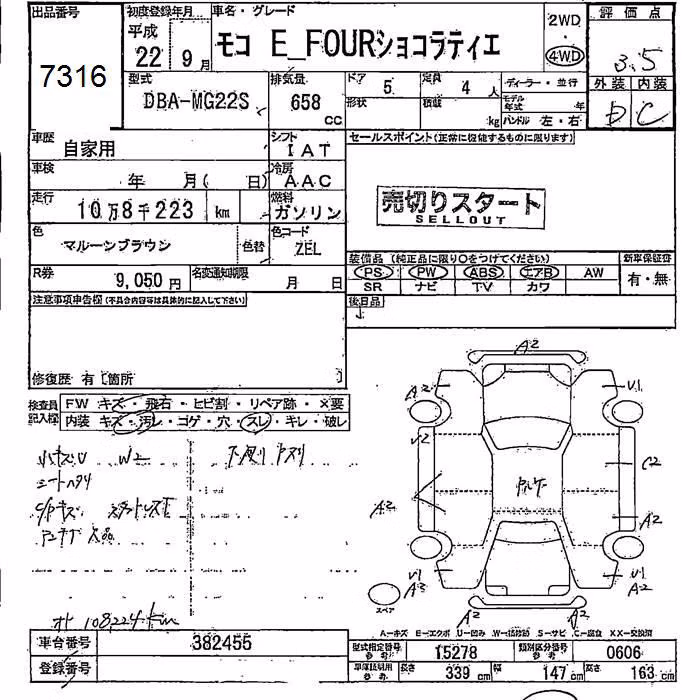 出品番号 初度登録年月 車名・グレード 2WD 評価点
7316 平成 22年 9月 モコ E_FOURショコラティエ 4WD 3.5
外装 内装
D C
型式 排気量 ドア 定員 ディーラー・並行
DBA-MG22S 658 cc 5 4人
形状 積載 kg モデル年式 年 ハンドル 左・右
車歴 自家用 シフト IAT セールスポイント(正常に機能するものに限ります)
車検 年 月( 日) 冷房 AAC
走行 10万8千223 km 燃料 ガソリン
売切りスタート
SELLOUT
色 マルーンブラウン 色替 色コード ZEL
装備品(純正品に限り○をつけてください) 新車保証書
PS PW ABS エアB AW 有・無
SR ナビ TV カワ
R券 9,050円 名変通知期限 月 日
後日品
注意事項申告欄(不具合内容等は具体的に記入して下さい)
修復歴 有[箇所 ]
検査員記入欄 FW キズ・飛石・ヒビ割・リペア跡・X要
内装 キズ・汚レ・コゲ・穴・スレ・キレ・破レ
小キズU W2
シートヘタリ
アンテナ欠品
オド 108224km
A2
A2 U1
U2 C2
A2 A2
U1 U1
A3 A2
A2 A2
スペア
A-キズ E-エクボ U-凹み W-補修跡 S-サビ C-腐食 XX-交換済
車台番号 382455
登録番号
型式指定番号 参考 15278 類別区分番号 参考 0606
車庫証明用 参考 長さ 339cm 幅 147cm 高さ 163cm